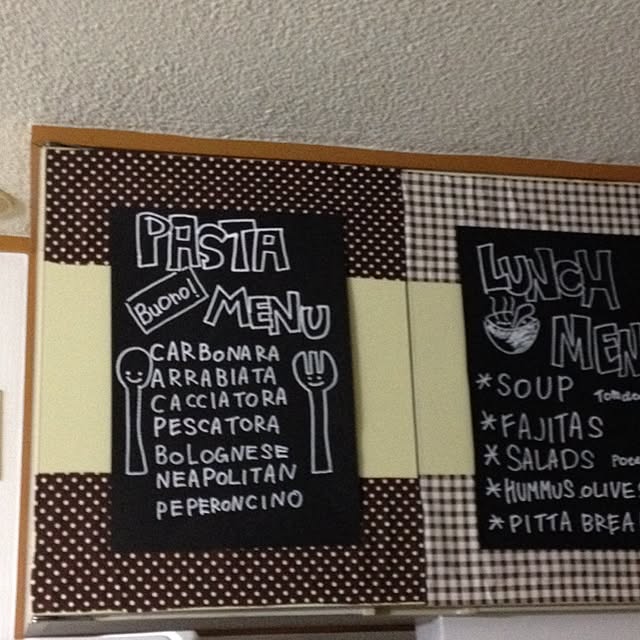 PASTA
Buono!
MENU
CARBONARA
ARRABIATA
CACCIATORA
PESCATORA
BOLOGNESE
NEAPOLITAN
PEPERONCINO
LUNCH
MEN
*SOUP
*FAJITAS
*SALADS
*HUMMUS.OLIVES
*PITTA BREA